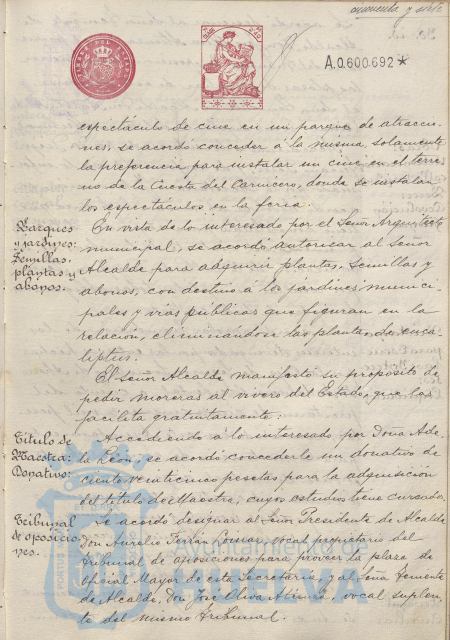 cincuenta y siete
A.0.600.692*
espectáculo de cine en un parque de atraccio-
nes, se acordó conceder á la misma, solamente
la preferencia para instalar un cine en el terre-
no de la Cuesta del Carnicero, donde se instalan
los espectáculos en la feria.
Parques
y jardines:
Semillas,
plantas y
abonos.
En vista de lo interesado por el Señor Arquitecto
municipal, se acordó autorizar al Señor
Alcalde para adquirir plantas, semillas y
abonos, con destino á los jardines munici-
pales y vías públicas que figuran en la
relación, eliminándose las plantas de euca-
liptus.
El señor Alcalde manifestó su propósito de
pedir moreras al vivero del Estado, que las
facilita gratuitamente.
Título de
Maestra:
Donativo:
Accediendo á lo interesado por Doña Ade-
la León, se acordó concederle un donativo de
ciento veinticinco pesetas para la adquisición
del título de Maestra, cuyos estudios tiene cursados.
Tribunal
de oposicio-
nes.
Se acordó designar al Señor Presidente de Alcalde
Don Aurelio Terrán, vocal propietario del
tribunal de oposiciones para proveer la plaza de
Oficial Mayor de esta Secretaría, y al Señor Teniente
de Alcalde, Don José Oliva, vocal suplen-
te del mismo tribunal.
Ayuntamiento de
HUELVA